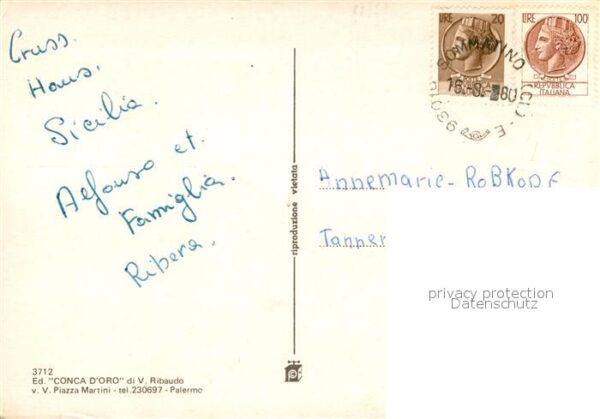 Gruss.
Haus.
Sicilia.
Alfonso et.
Famiglia.
Ribera.
3712
Ed. "CONCA D'ORO" di V. Ribaudo
v. V. Piazza Martini - tel.230697 - Palermo
riproduzione vietata
LIRE 20
LIRE 100
REPVBBLICA
ITALIANA
SOMMATINO (CL) - E
93019
Annemarie - RoBKoDF
Tanner
privacy protection
Datenschutz